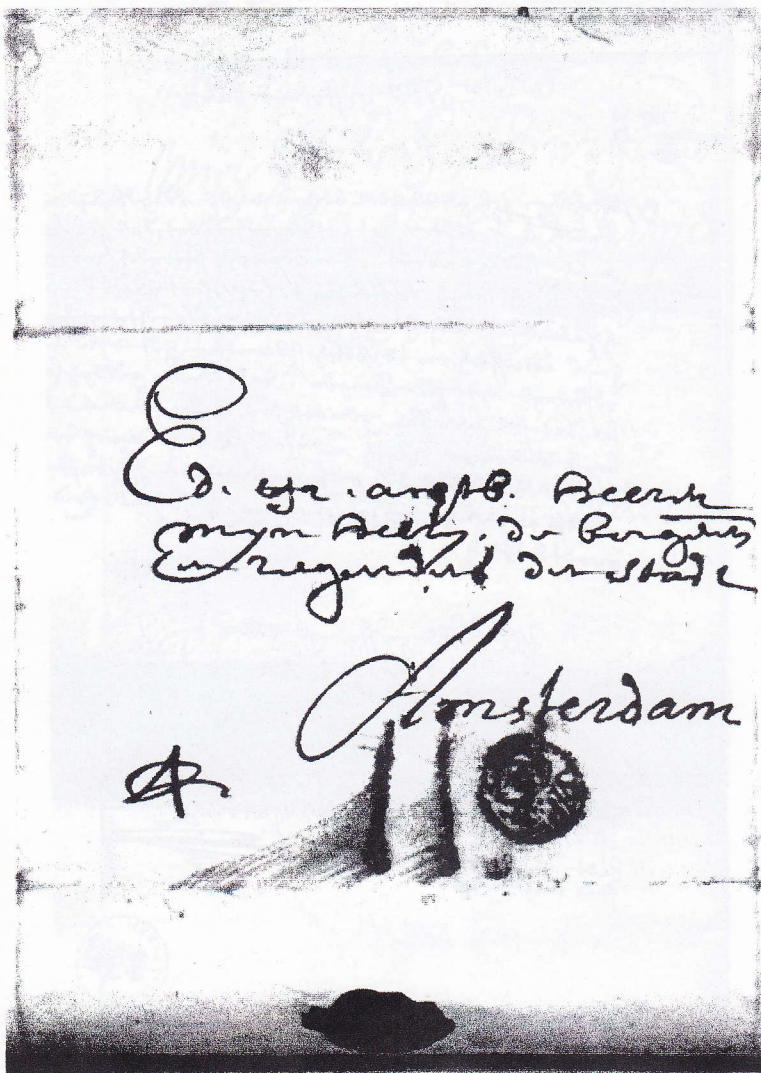 Ed. agr. angtb. Heeren
myn Heeren. de Burgerms
En regeerders der Stadt
Amsterdam